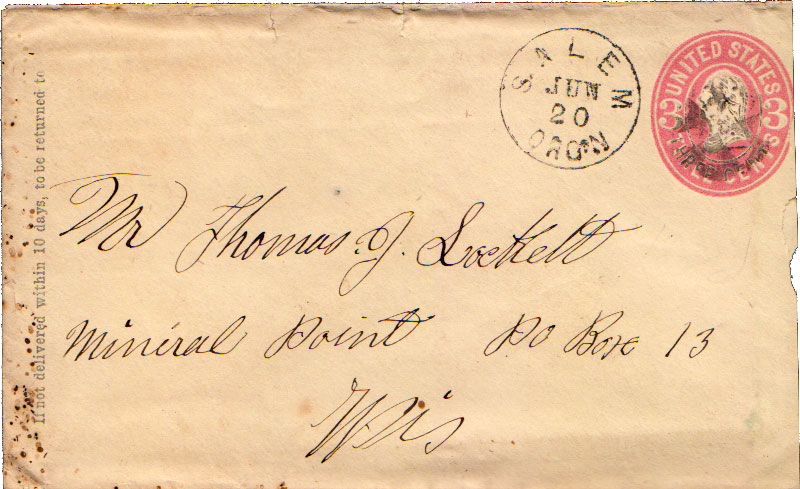 If not delivered within 10 days, to be returned to
SALEM
JUN
20
OREGN
UNITED STATES
3 3
THREE CENTS
Mr Thomas J. Lockett
Mineral Point PO Box 13
Wis